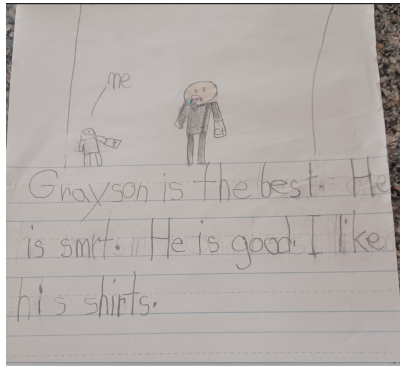 me
Grayson is the best. He
is smrt. He is good. I like
his shirts.